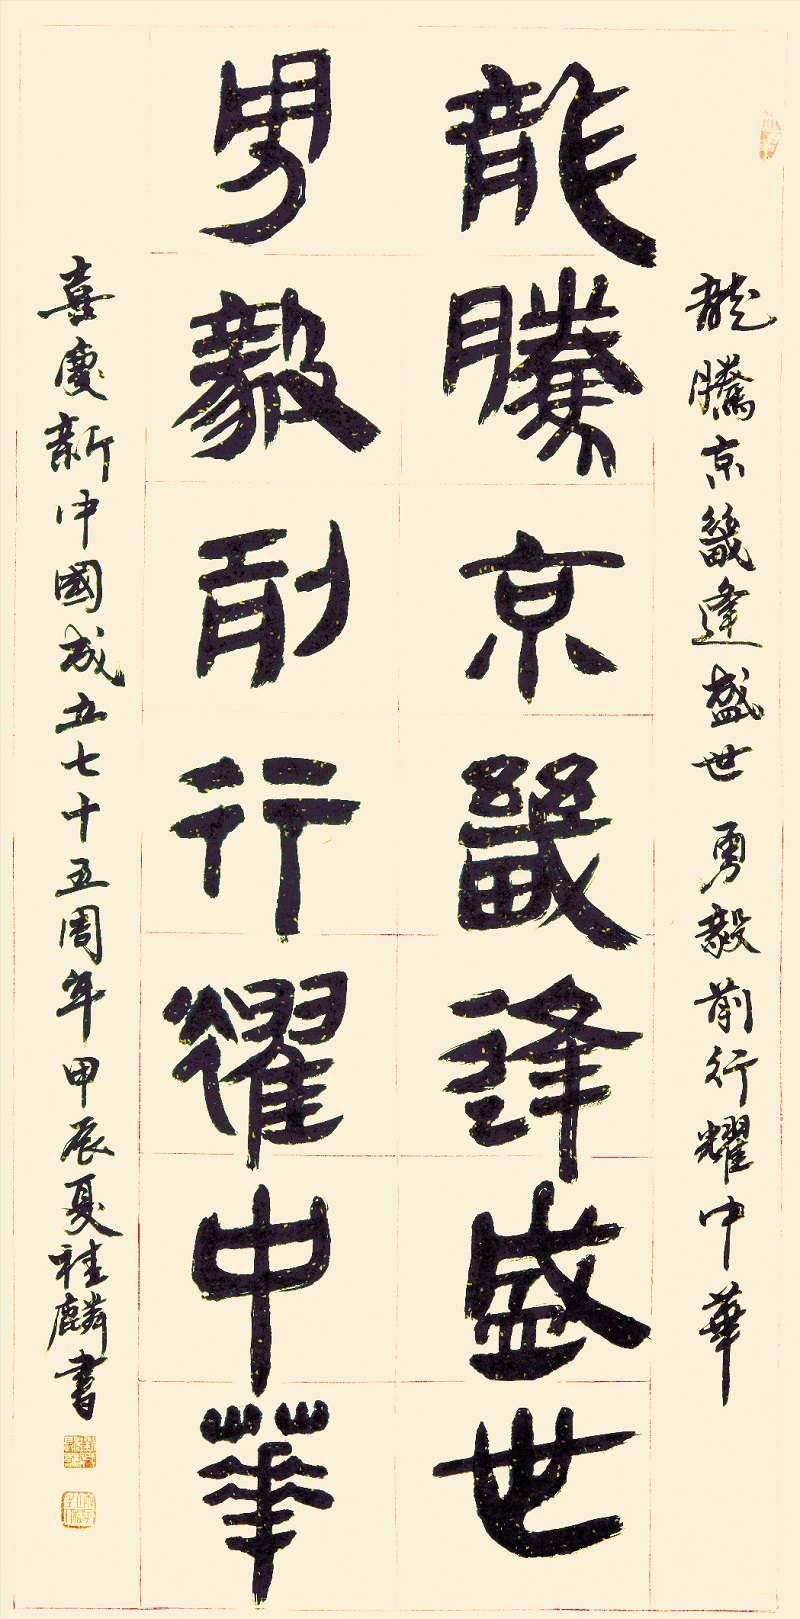 龍騰京畿逢盛世 勇毅前行耀中華
龍騰京畿逢盛世
勇毅前行耀中華
喜慶新中國成立七十五周年甲辰夏桂麟書